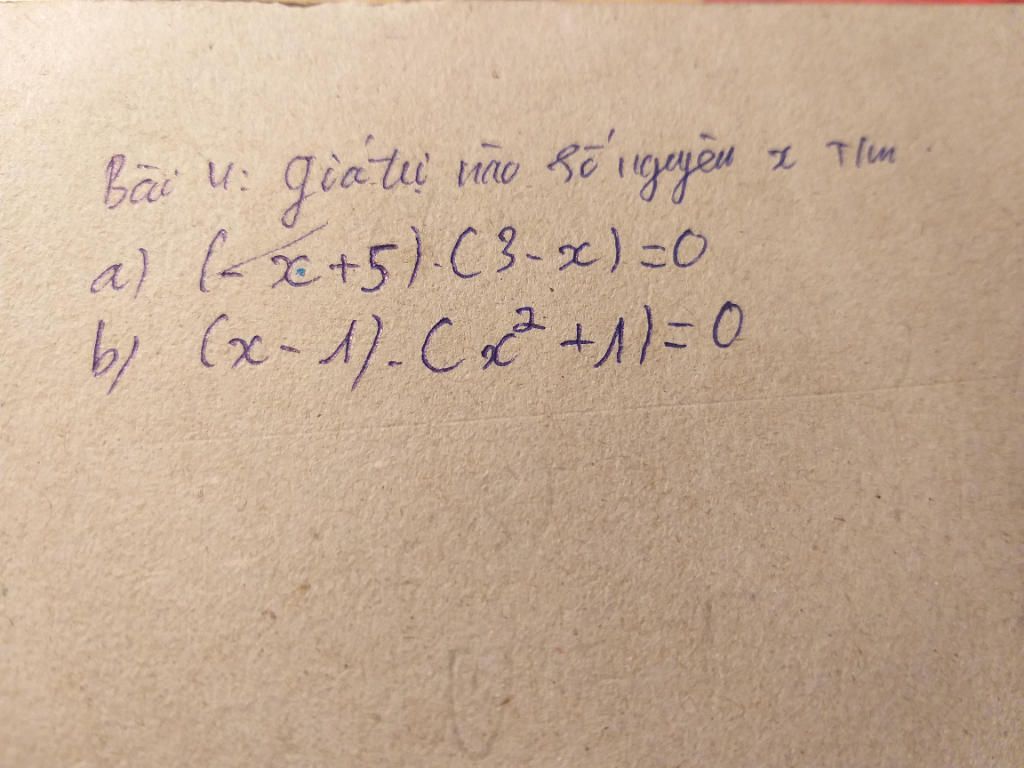 Bài 4: Giá trị nào số nguyên x Tìm
a) (-x+5).(3-x)=0
b) (x-1).(x²+1)=0